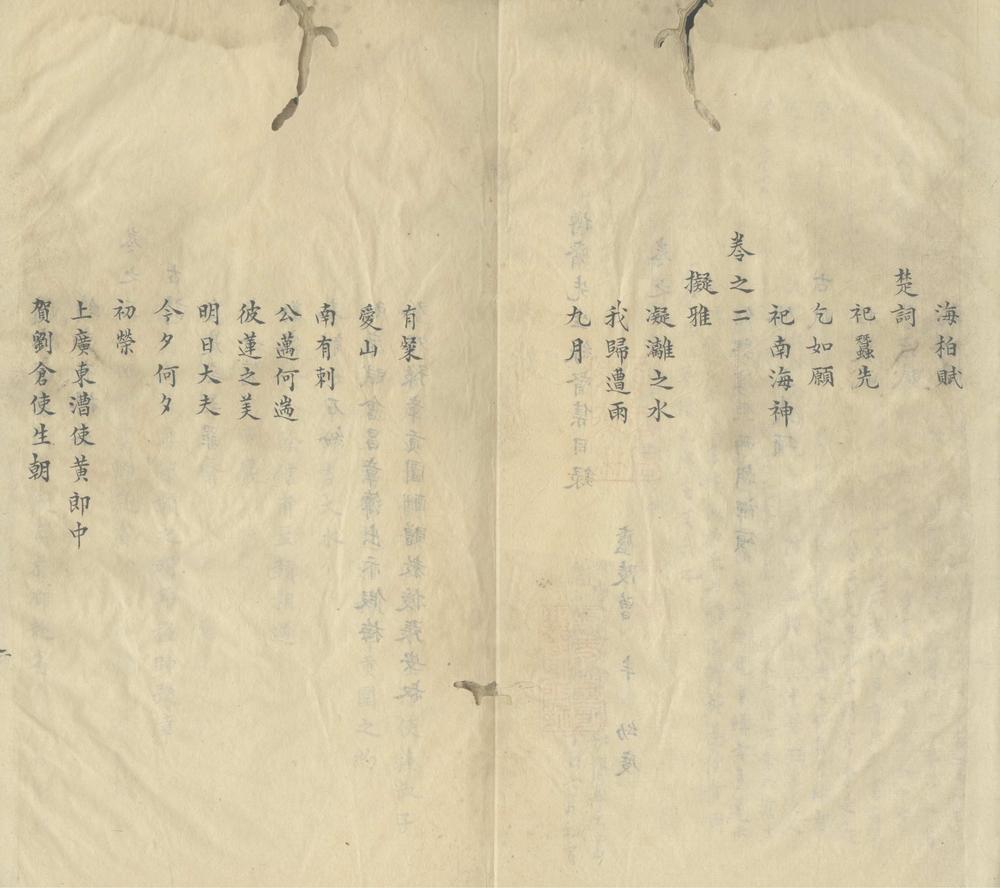 海柏賦
楚詞
祀蠶先
乞如願
祀南海神
卷之二
擬雅
凝灕之水
我歸遭雨
九月
有菉
愛山
南有刺
公邁何遄
彼蓮之美
明日大夫
今夕何夕
初榮
上廣東漕使黄郎中
賀劉倉使生朝